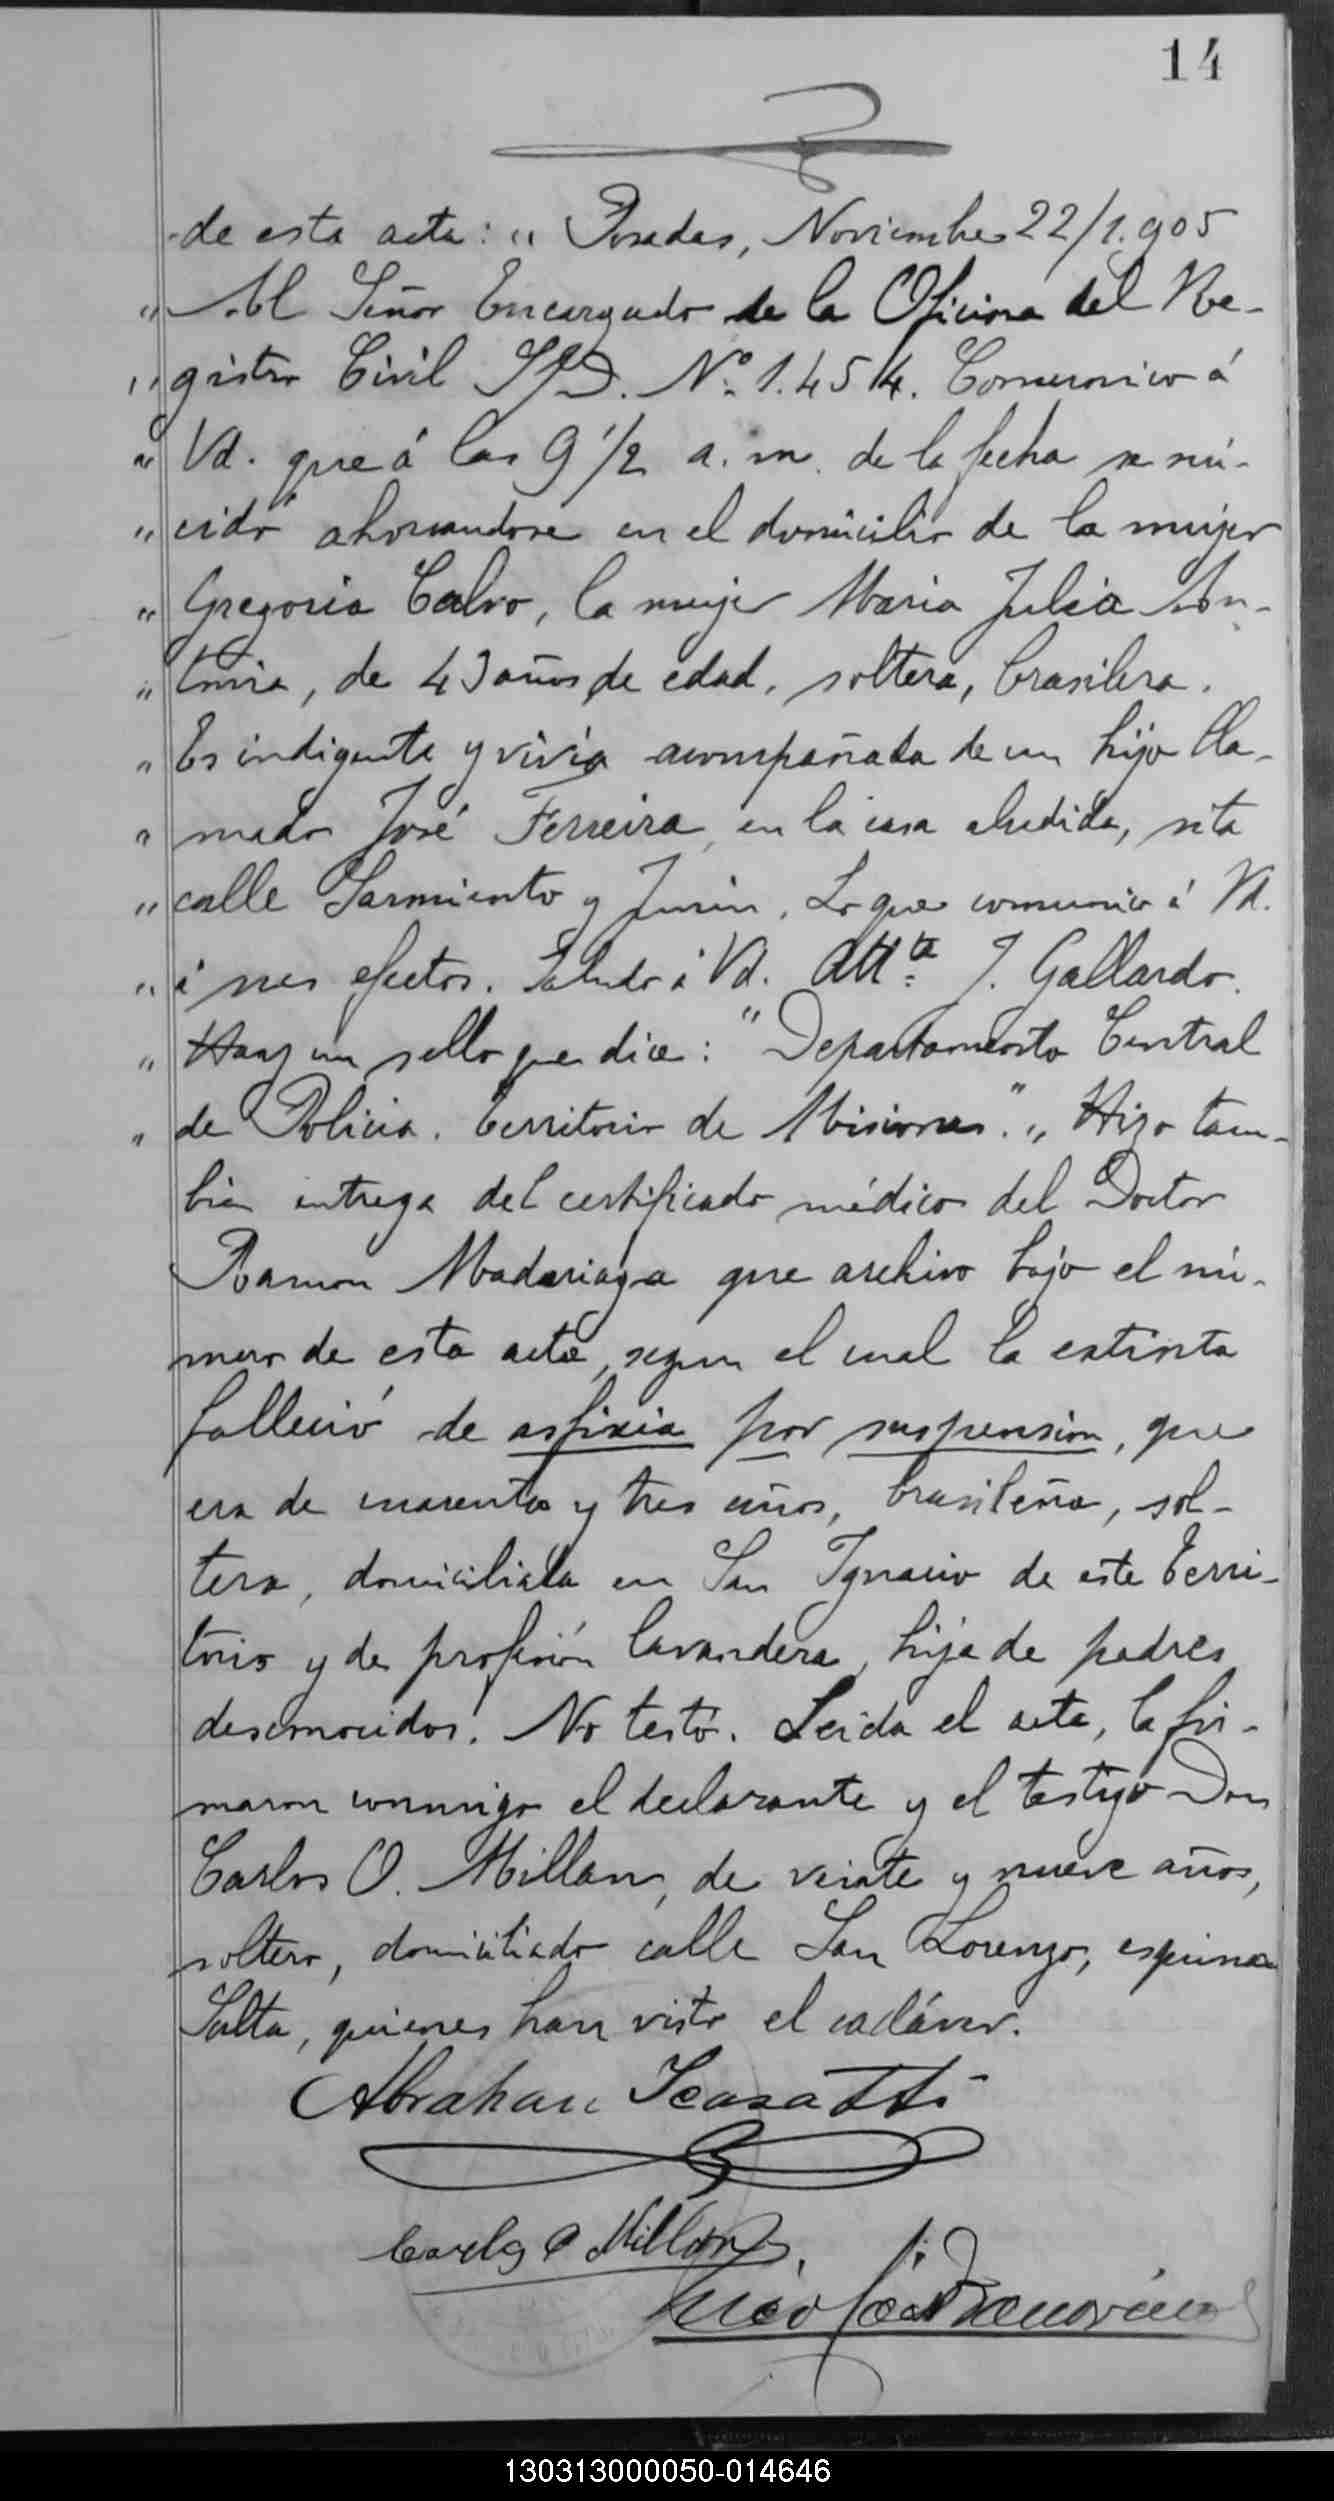 14
de esta acta: " Posadas, Noviembre 22/1.905
" Al Señor Encargado de la Oficina del Re-
" gistro Civil S/D. Nº 1.454. Comunico á
" Vd. que á las 9 1/2 a. m. de la fecha se sui-
" cidó ahorcandose en el domicilio de la mujer
" Gregoria Calvo, la mujer Maria Julia An-
" tonia, de 43 años de edad, soltera, brasilera.
" Es indigente y vivia acompañada de un hijo lla-
" mado José Ferreira, en la casa aludida, sita
" calle Sarmiento y Junin. Lo que comunico á Vd.
" á sus efectos. Saludo á Vd. Attª J. Gallardo.
" Hay un sello que dice: "Departamento Central
" de Policia. Territorio de Misiones." " Hizo tam-
bien entrega del certificado médico del Doctor
Ramon Madariaga que archivo bajo el nú-
mero de esta acta, segun el cual la extinta
falleció de asfixia por suspension, que
era de cuarenta y tres años, brasileña, sol-
tera, domiciliada en San Ignacio de este Terri-
torio y de profesión lavandera, hija de padres
desconocidos. No testó. Leida el acta, la fir-
maron conmigo el declarante y el testigo Don
Carlos O. Millan, de veinte y nueve años,
soltero, domiciliado calle San Lorenzo, esquina
Salta, quienes han visto el cadáver.
Abrahan Scasatti
Carlos O Millan
130313000050-014646